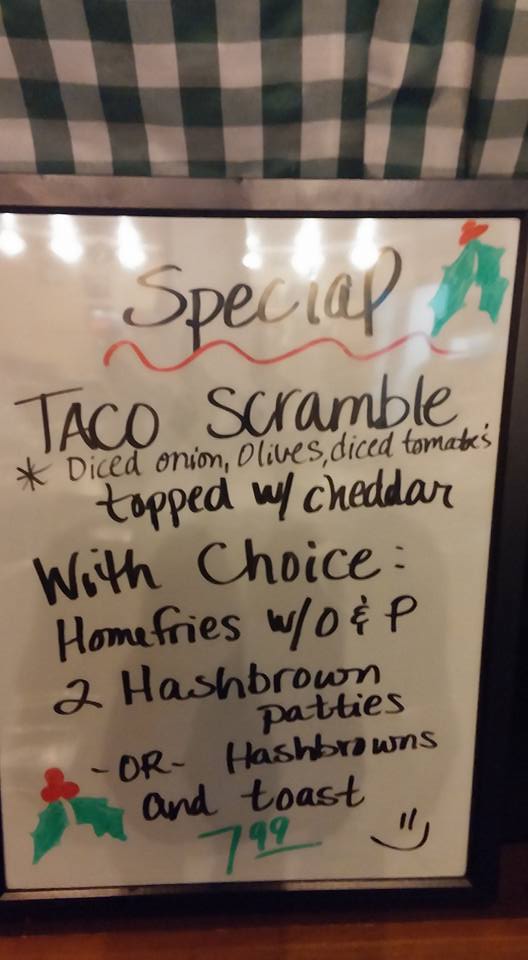 Special
TACO Scramble
* Diced onion, Olives, diced tomatoe's
topped w/ cheddar
With Choice:
Homefries w/ O & P
2 Hashbrown
patties
-OR- Hashbrowns
and toast
7.99